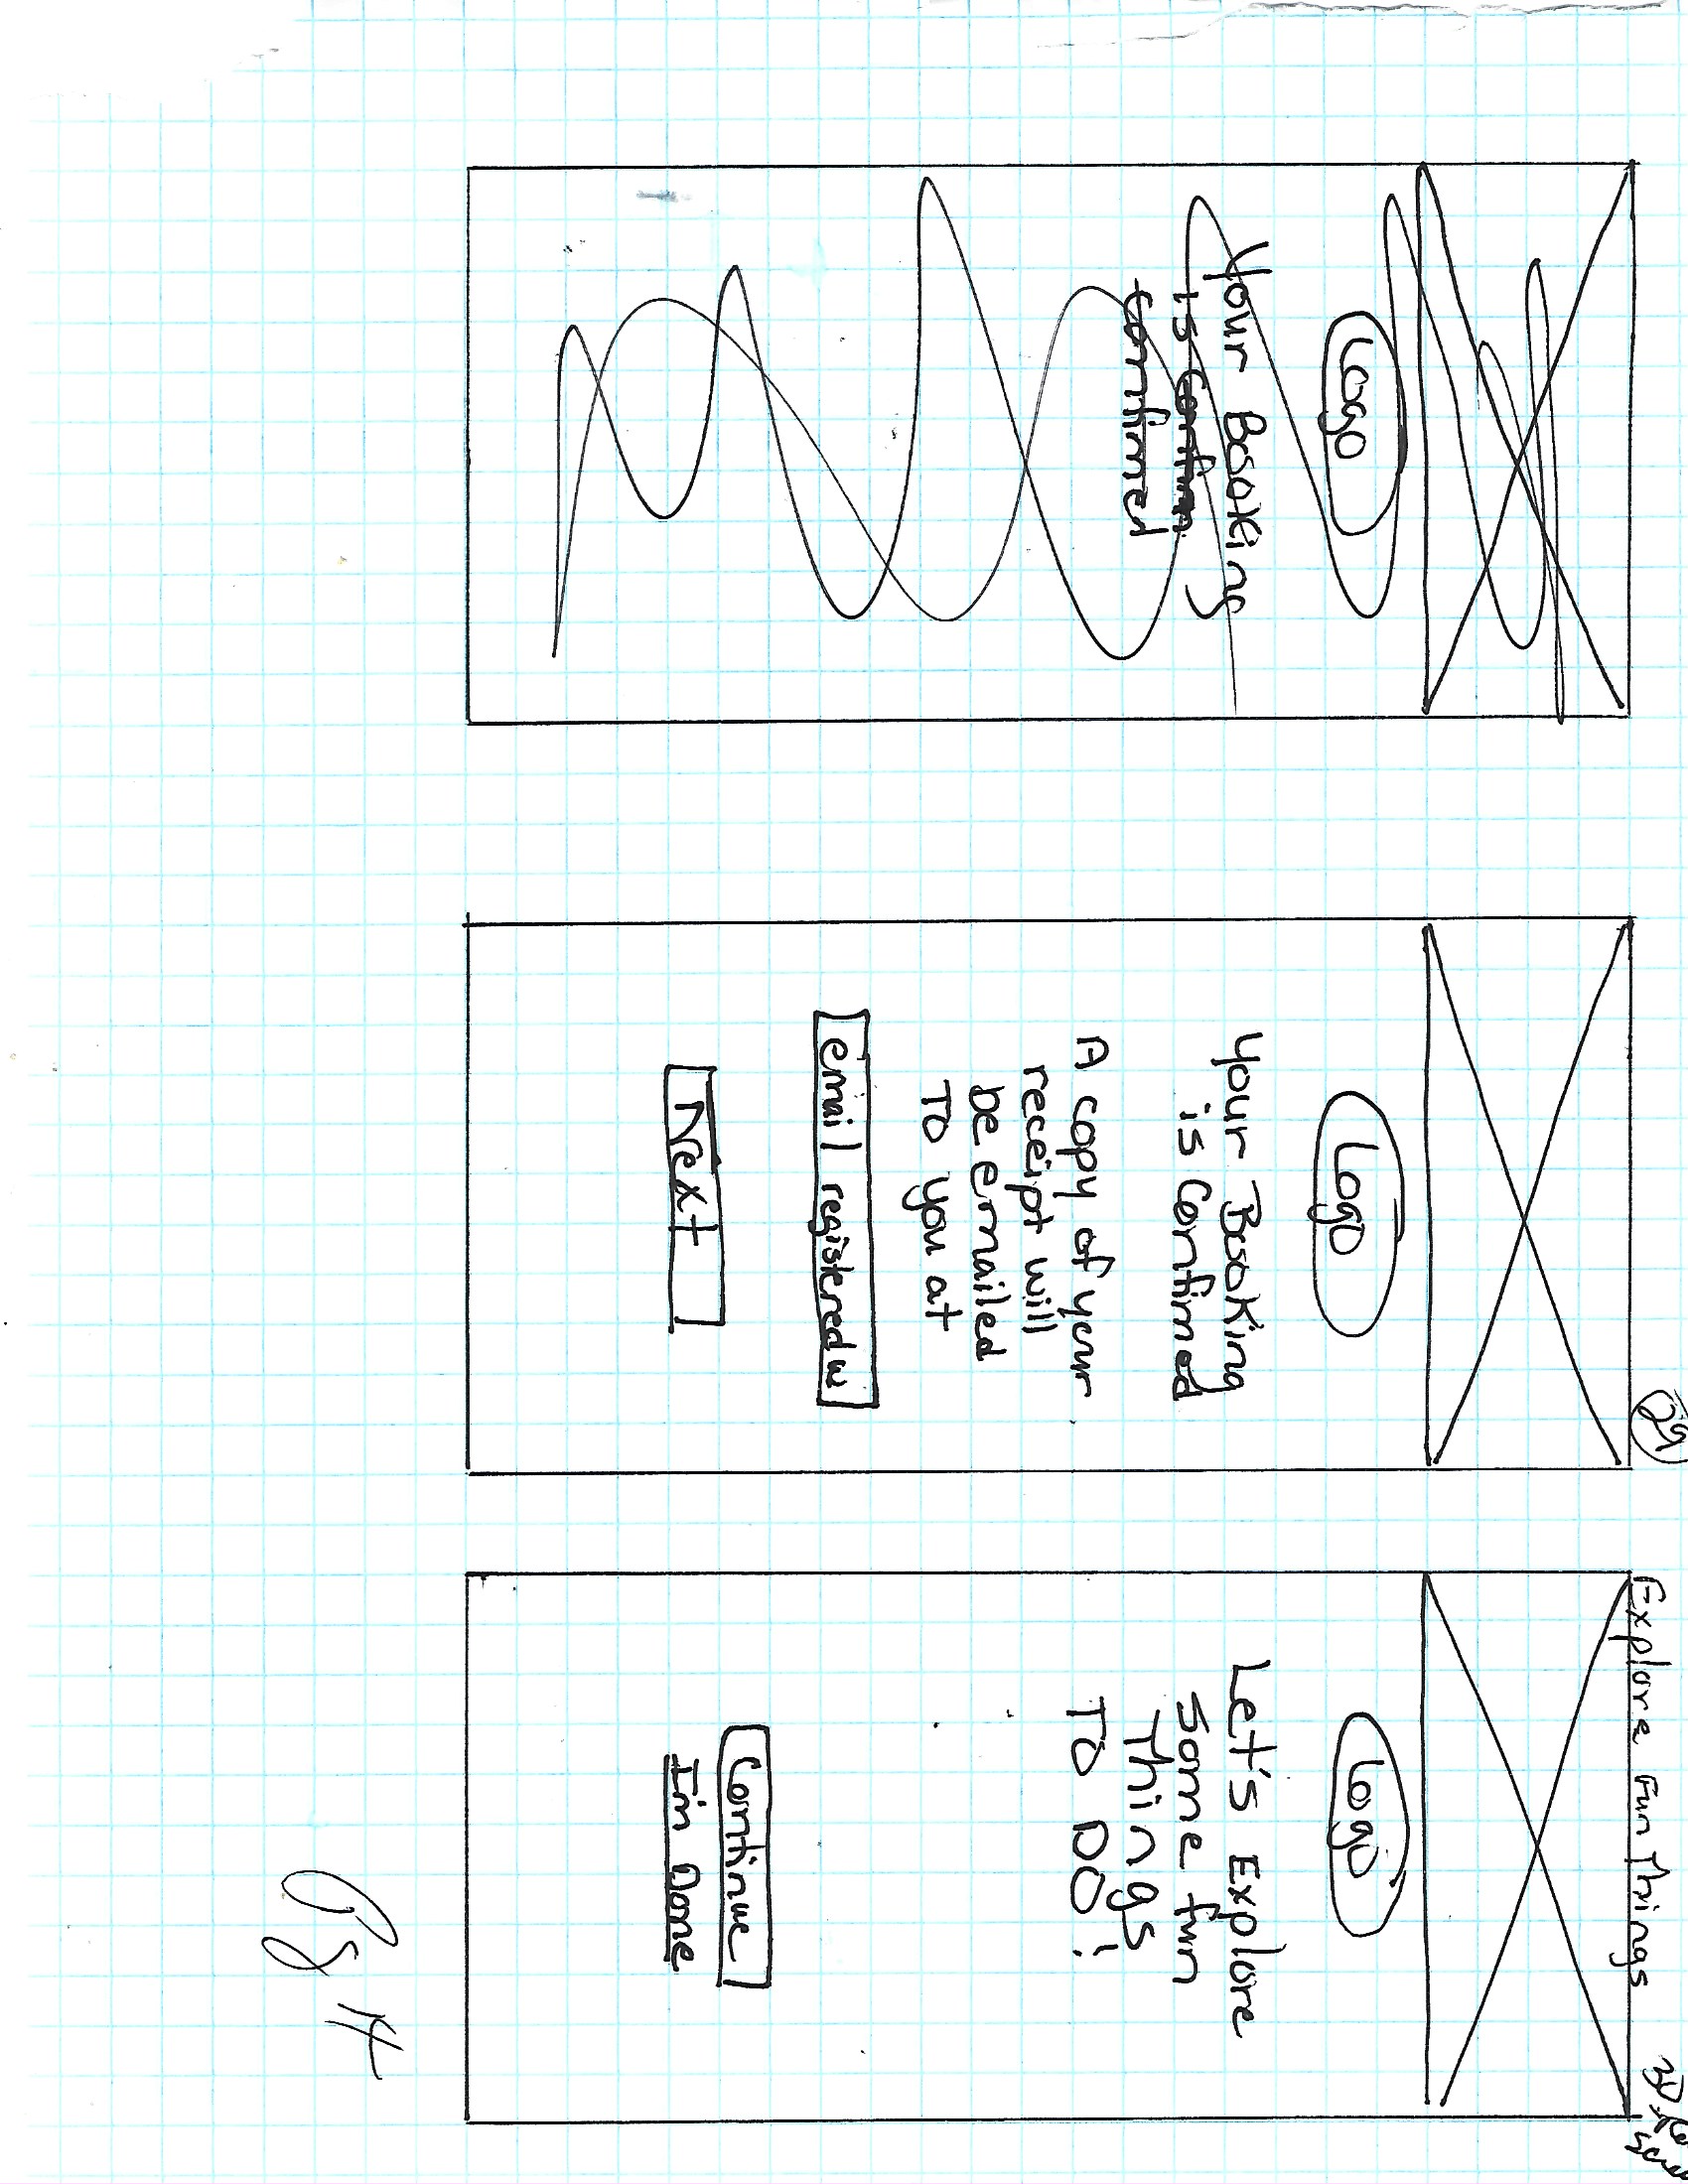 Logo
Your Booking
is Confirm
confirmed
29
Logo
Your Booking
is Confirmed
A copy of your
receipt will
be emailed
To you at
email registered w
Next
Explore Fun Things
Logo
Let's Explore
Some fun
Things
To DO!
Continue
Im Done
Pg 14